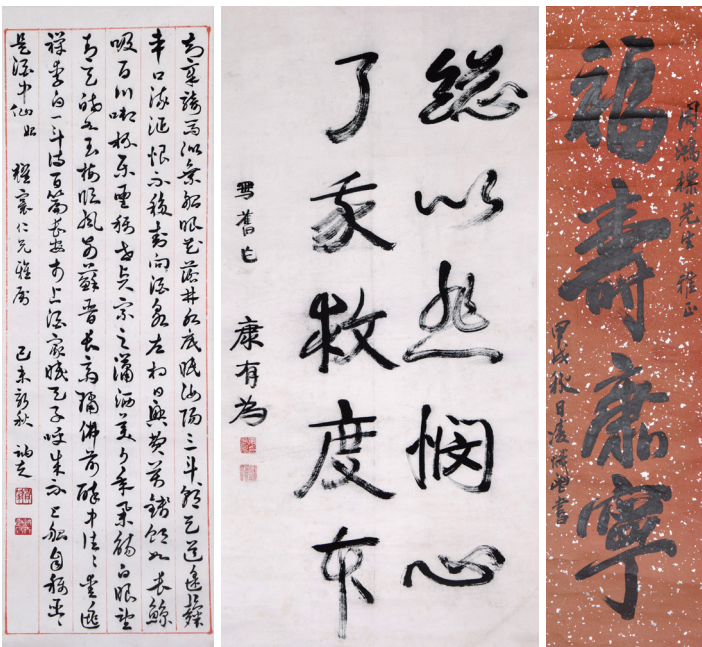 知章騎馬似乘船眼花落井水底眠汝陽三斗朝天道逢麴
車口流涎恨不移封向酒泉左相日興費萬錢飲如長鯨
吸百川銜杯樂聖稱世賢宗之瀟洒美少年舉觴白眼望
青天皎如玉樹臨風前蘇晉長齋繡佛前醉中往々愛逃
禪李白一斗詩百篇長安市上酒家眠天子呼來不上船自稱臣
是酒中仙 仁兄雅屬 己未新秋
總以悲憫心
了我救度
寫舊 康有為
周鴻標先生 雅正
福壽康寧
甲戌秋日 書